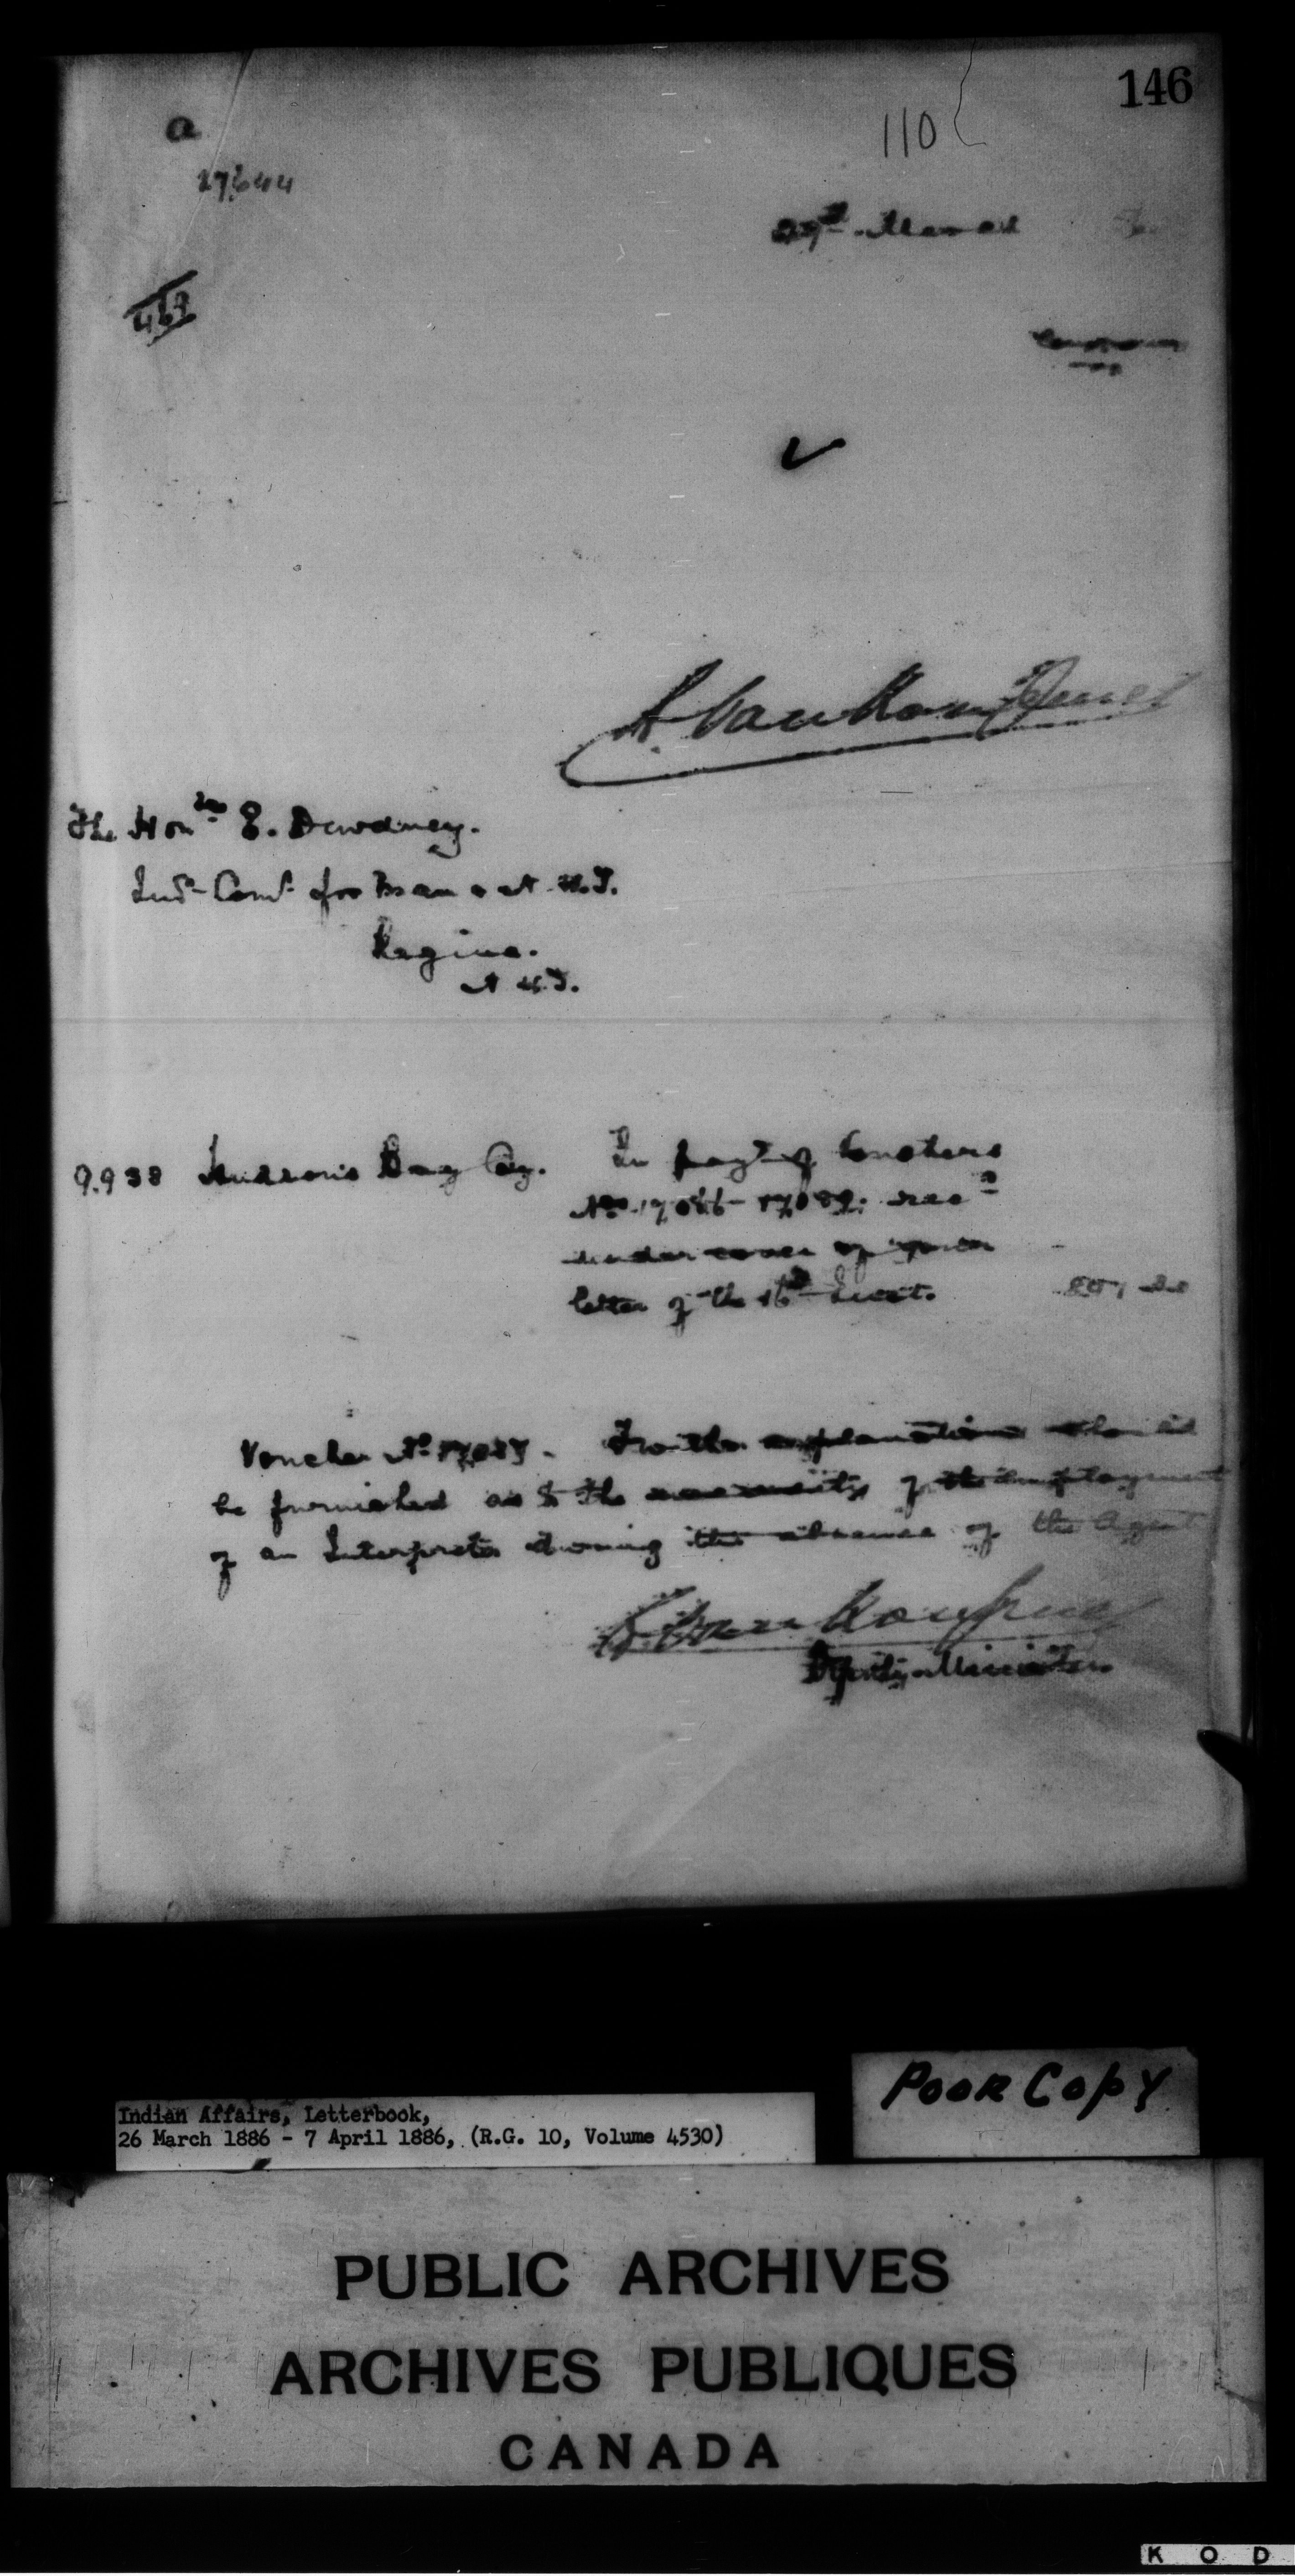 146
a
110
27644
29th March
467
L. VanKoughnet
The Honble E. Dewdney.
Indn Comr for Man & N.W.T.
Regina.
N.W.T.
9.938 Hudson's Bay Coy. In payt of Vouchers
Nos 17,086 - 17,089; recd
under cover of your
letter of the 16th Inst.
Voucher No 17,087. Further explanations should
be furnished as to the necessity of the employment
of an Interpreter during the absence of the Agent
L. VanKoughnet
Deputy Minister.
Poor Copy
Indian Affairs, Letterbook,
26 March 1886 - 7 April 1886, (R.G. 10, Volume 4530)
PUBLIC ARCHIVES
ARCHIVES PUBLIQUES
CANADA
K O D